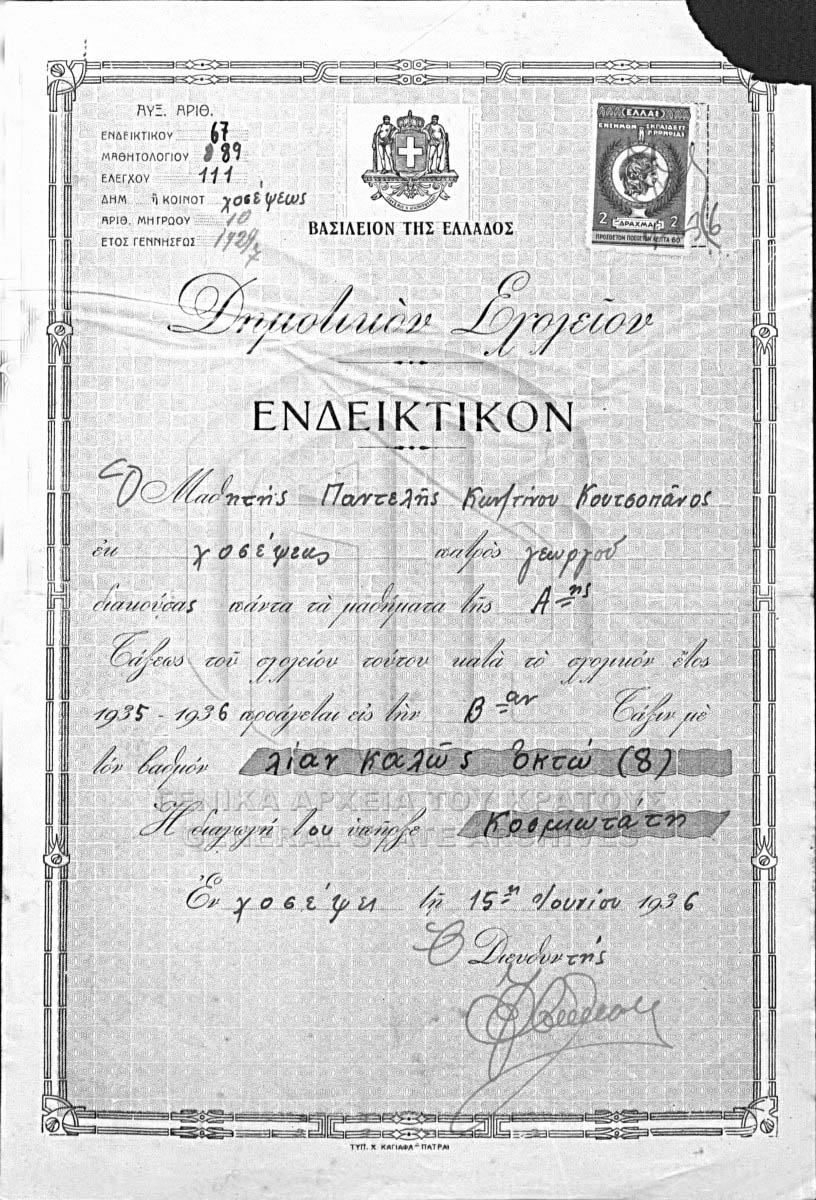 ΑΥΞ. ΑΡΙΘ.
ΕΝΔΕΙΚΤΙΚΟΥ 67
ΜΑΘΗΤΟΛΟΓΙΟΥ 89
ΕΛΕΓΧΟΥ 111
ΔΗΜ. ἢ ΚΟΙΝΟΤ χοσέψεως
ΑΡΙΘ. ΜΗΤΡΩΟΥ 10
ΕΤΟΣ ΓΕΝΝΗΣΕΩΣ
ΒΑΣΙΛΕΙΟΝ ΤΗΣ ΕΛΛΑΔΟΣ
ΕΛΛΑΣ
ΕΝΣΗΜΟΝ ΕΚΠΑΙΔΕΥΤ
ΠΡΟΝΟΙΑΣ
2 ΔΡΑΧΜΑΙ 2
ΠΡΟΣΘΕΤΟΝ ΠΟΣΟΣΤΟΝ ΛΕΠΤΑ 60
Δημοτικὸν Σχολεῖον
ΕΝΔΕΙΚΤΙΚΟΝ
Ὁ Μαθητής Παντελῆς Κων]τίνου Κουτσοπᾶνος
ἐκ χοσέψεως πατρὸς γεωργοῦ
διακούσας πάντα τὰ μαθήματα τῆς Α-ης
Τάξεως τοῦ σχολείου τούτου κατὰ τὸ σχολικόν ἔτος
1935 - 1936 προάγεται εἰς τὴν Β-αν Τάξιν μὲ
τόν βαθμόν λίαν καλῶς ὀκτώ (8)
ΓΕΝΙΚΑ ΑΡΧΕΙΑ ΤΟΥ ΚΡΑΤΟΥΣ
Ἡ διαγωγή του ὑπῆρξε κοσμιωτάτη
GENERAL STATE ARCHIVES
Ἐν χοσέψει τῇ 15-η Ἰουνίου 1936
Ὁ Διευθυντής
ΤΥΠ. Χ. ΚΑΓΙΑΦΑ - ΠΑΤΡΑΙ